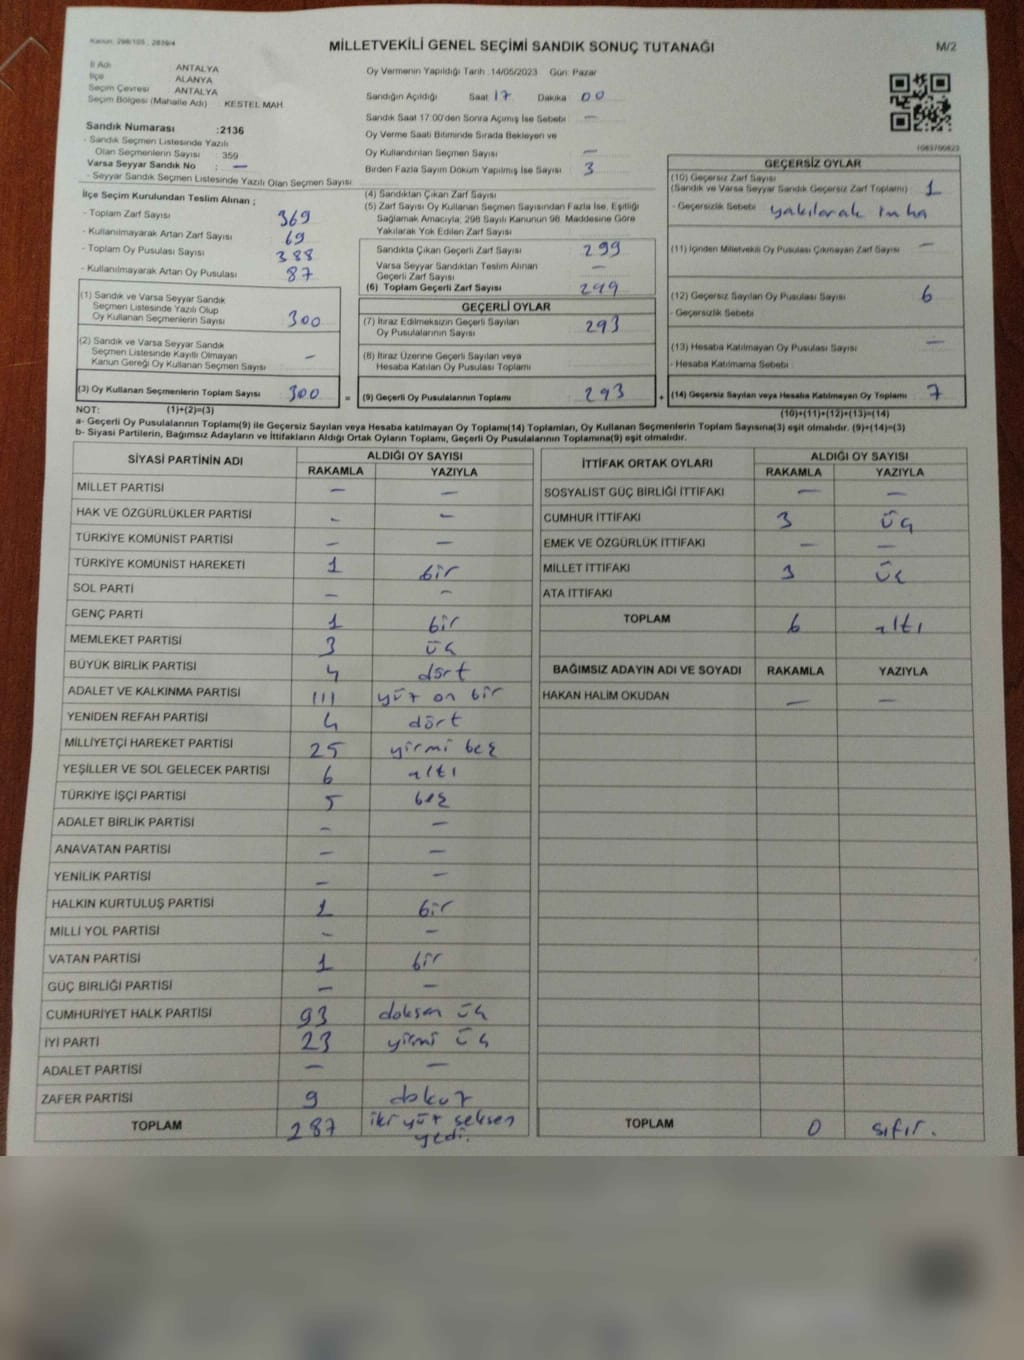 Kanun: 298/105 , 2839/4
MİLLETVEKİLİ GENEL SEÇİMİ SANDIK SONUÇ TUTANAĞI
M/2
İl Adı ANTALYA
İlçe ALANYA
Seçim Çevresi ANTALYA
Seçim Bölgesi (Mahalle Adı) KESTEL MAH.
Oy Vermenin Yapıldığı Tarih :14/05/2023 Gün: Pazar
Sandığın Açıldığı Saat 17 Dakika 00
Sandık Saat 17:00'den Sonra Açımış İse Sebebi —
Oy Verme Saati Bitiminde Sırada Bekleyen ve
Oy Kullandırılan Seçmen Sayısı —
Birden Fazla Sayım Döküm Yapılmış İse Sayısı 3
Sandık Numarası :2136
- Sandık Seçmen Listesinde Yazılı
Olan Seçmenlerin Sayısı : 350
Varsa Seyyar Sandık No : —
- Seyyar Sandık Seçmen Listesinde Yazılı Olan Seçmen Sayısı
İlçe Seçim Kurulundan Teslim Alınan ;
- Toplam Zarf Sayısı 369
- Kullanılmayarak Artan Zarf Sayısı 69
- Toplam Oy Pusulası Sayısı 388
- Kullanılmayarak Artan Oy Pusulası 87
(1) Sandık ve Varsa Seyyar Sandık
Seçmen Listesinde Yazılı Olup
Oy Kullanan Seçmenlerin Sayısı 300
(2) Sandık ve Varsa Seyyar Sandık
Seçmen Listesinde Kayıtlı Olmayan
Kanun Gereği Oy Kullanan Seçmen Sayısı —
(3) Oy Kullanan Seçmenlerin Toplam Sayısı 300 =
(4) Sandıktan Çıkan Zarf Sayısı
(5) Zarf Sayısı Oy Kullanan Seçmen Sayısından Fazla İse, Eşitliği
Sağlamak Amacıyla, 298 Sayılı Kanunun 98. Maddesine Göre
Yakılarak Yok Edilen Zarf Sayısı
Sandıkta Çıkan Geçerli Zarf Sayısı 299
Varsa Seyyar Sandıktan Teslim Alınan
Geçerli Zarf Sayısı —
(6) Toplam Geçerli Zarf Sayısı 299
GEÇERLİ OYLAR
(7) İtiraz Edilmeksizin Geçerli Sayılan
Oy Pusulalarının Sayısı 293
(8) İtiraz Üzerine Geçerli Sayılan veya
Hesaba Katılan Oy Pusulası Toplamı
(9) Geçerli Oy Pusulalarının Toplamı 293 +
1083700823
GEÇERSİZ OYLAR
(10) Geçersiz Zarf Sayısı
(Sandık ve Varsa Seyyar Sandık Geçersiz Zarf Toplamı) 1
- Geçersizlik Sebebi yakılarak imha
(11) İçinden Milletvekili Oy Pusulası Çıkmayan Zarf Sayısı —
(12) Geçersiz Sayılan Oy Pusulası Sayısı 6
- Geçersizlik Sebebi
(13) Hesaba Katılmayan Oy Pusulası Sayısı —
- Hesaba Katılmama Sebebi
(14) Geçersiz Sayılan veya Hesaba Katılmayan Oy Toplamı 7
NOT: (1)+(2)=(3)
(10)+(11)+(12)+(13)=(14)
a- Geçerli Oy Pusulalarının Toplamı(9) ile Geçersiz Sayılan veya Hesaba katılmayan Oy Toplamı(14) Toplamları, Oy Kullanan Seçmenlerin Toplam Sayısına(3) eşit olmalıdır. (9)+(14)=(3)
b- Siyasi Partilerin, Bağımsız Adayların ve İttifakların Aldığı Ortak Oyların Toplamı, Geçerli Oy Pusulalarının Toplamına(9) eşit olmalıdır.
SİYASİ PARTİNİN ADI ALDIĞI OY SAYISI
RAKAMLA YAZIYLA
MİLLET PARTİSİ — —
HAK VE ÖZGÜRLÜKLER PARTİSİ — —
TÜRKİYE KOMÜNİST PARTİSİ — —
TÜRKİYE KOMÜNİST HAREKETİ 1 bir
SOL PARTİ — —
GENÇ PARTİ 1 bir
MEMLEKET PARTİSİ 3 üç
BÜYÜK BİRLİK PARTİSİ 4 dört
ADALET VE KALKINMA PARTİSİ 111 yüz on bir
YENİDEN REFAH PARTİSİ 4 dört
MİLLİYETÇİ HAREKET PARTİSİ 25 yirmi beş
YEŞİLLER VE SOL GELECEK PARTİSİ 6 altı
TÜRKİYE İŞÇİ PARTİSİ 5 beş
ADALET BİRLİK PARTİSİ — —
ANAVATAN PARTİSİ — —
YENİLİK PARTİSİ — —
HALKIN KURTULUŞ PARTİSİ 1 bir
MİLLİ YOL PARTİSİ — —
VATAN PARTİSİ 1 bir
GÜÇ BİRLİĞİ PARTİSİ — —
CUMHURİYET HALK PARTİSİ 93 doksan üç
İYİ PARTİ 23 yirmi üç
ADALET PARTİSİ — —
ZAFER PARTİSİ 9 dokuz
TOPLAM 287 iki yüz seksen
yedi.
İTTİFAK ORTAK OYLARI ALDIĞI OY SAYISI
RAKAMLA YAZIYLA
SOSYALİST GÜÇ BİRLİĞİ İTTİFAKI — —
CUMHUR İTTİFAKI 3 üç
EMEK VE ÖZGÜRLÜK İTTİFAKI — —
MİLLET İTTİFAKI 3 üç
ATA İTTİFAKI
TOPLAM 6 altı
BAĞIMSIZ ADAYIN ADI VE SOYADI RAKAMLA YAZIYLA
HAKAN HALİM OKUDAN — —
TOPLAM 0 sıfır.